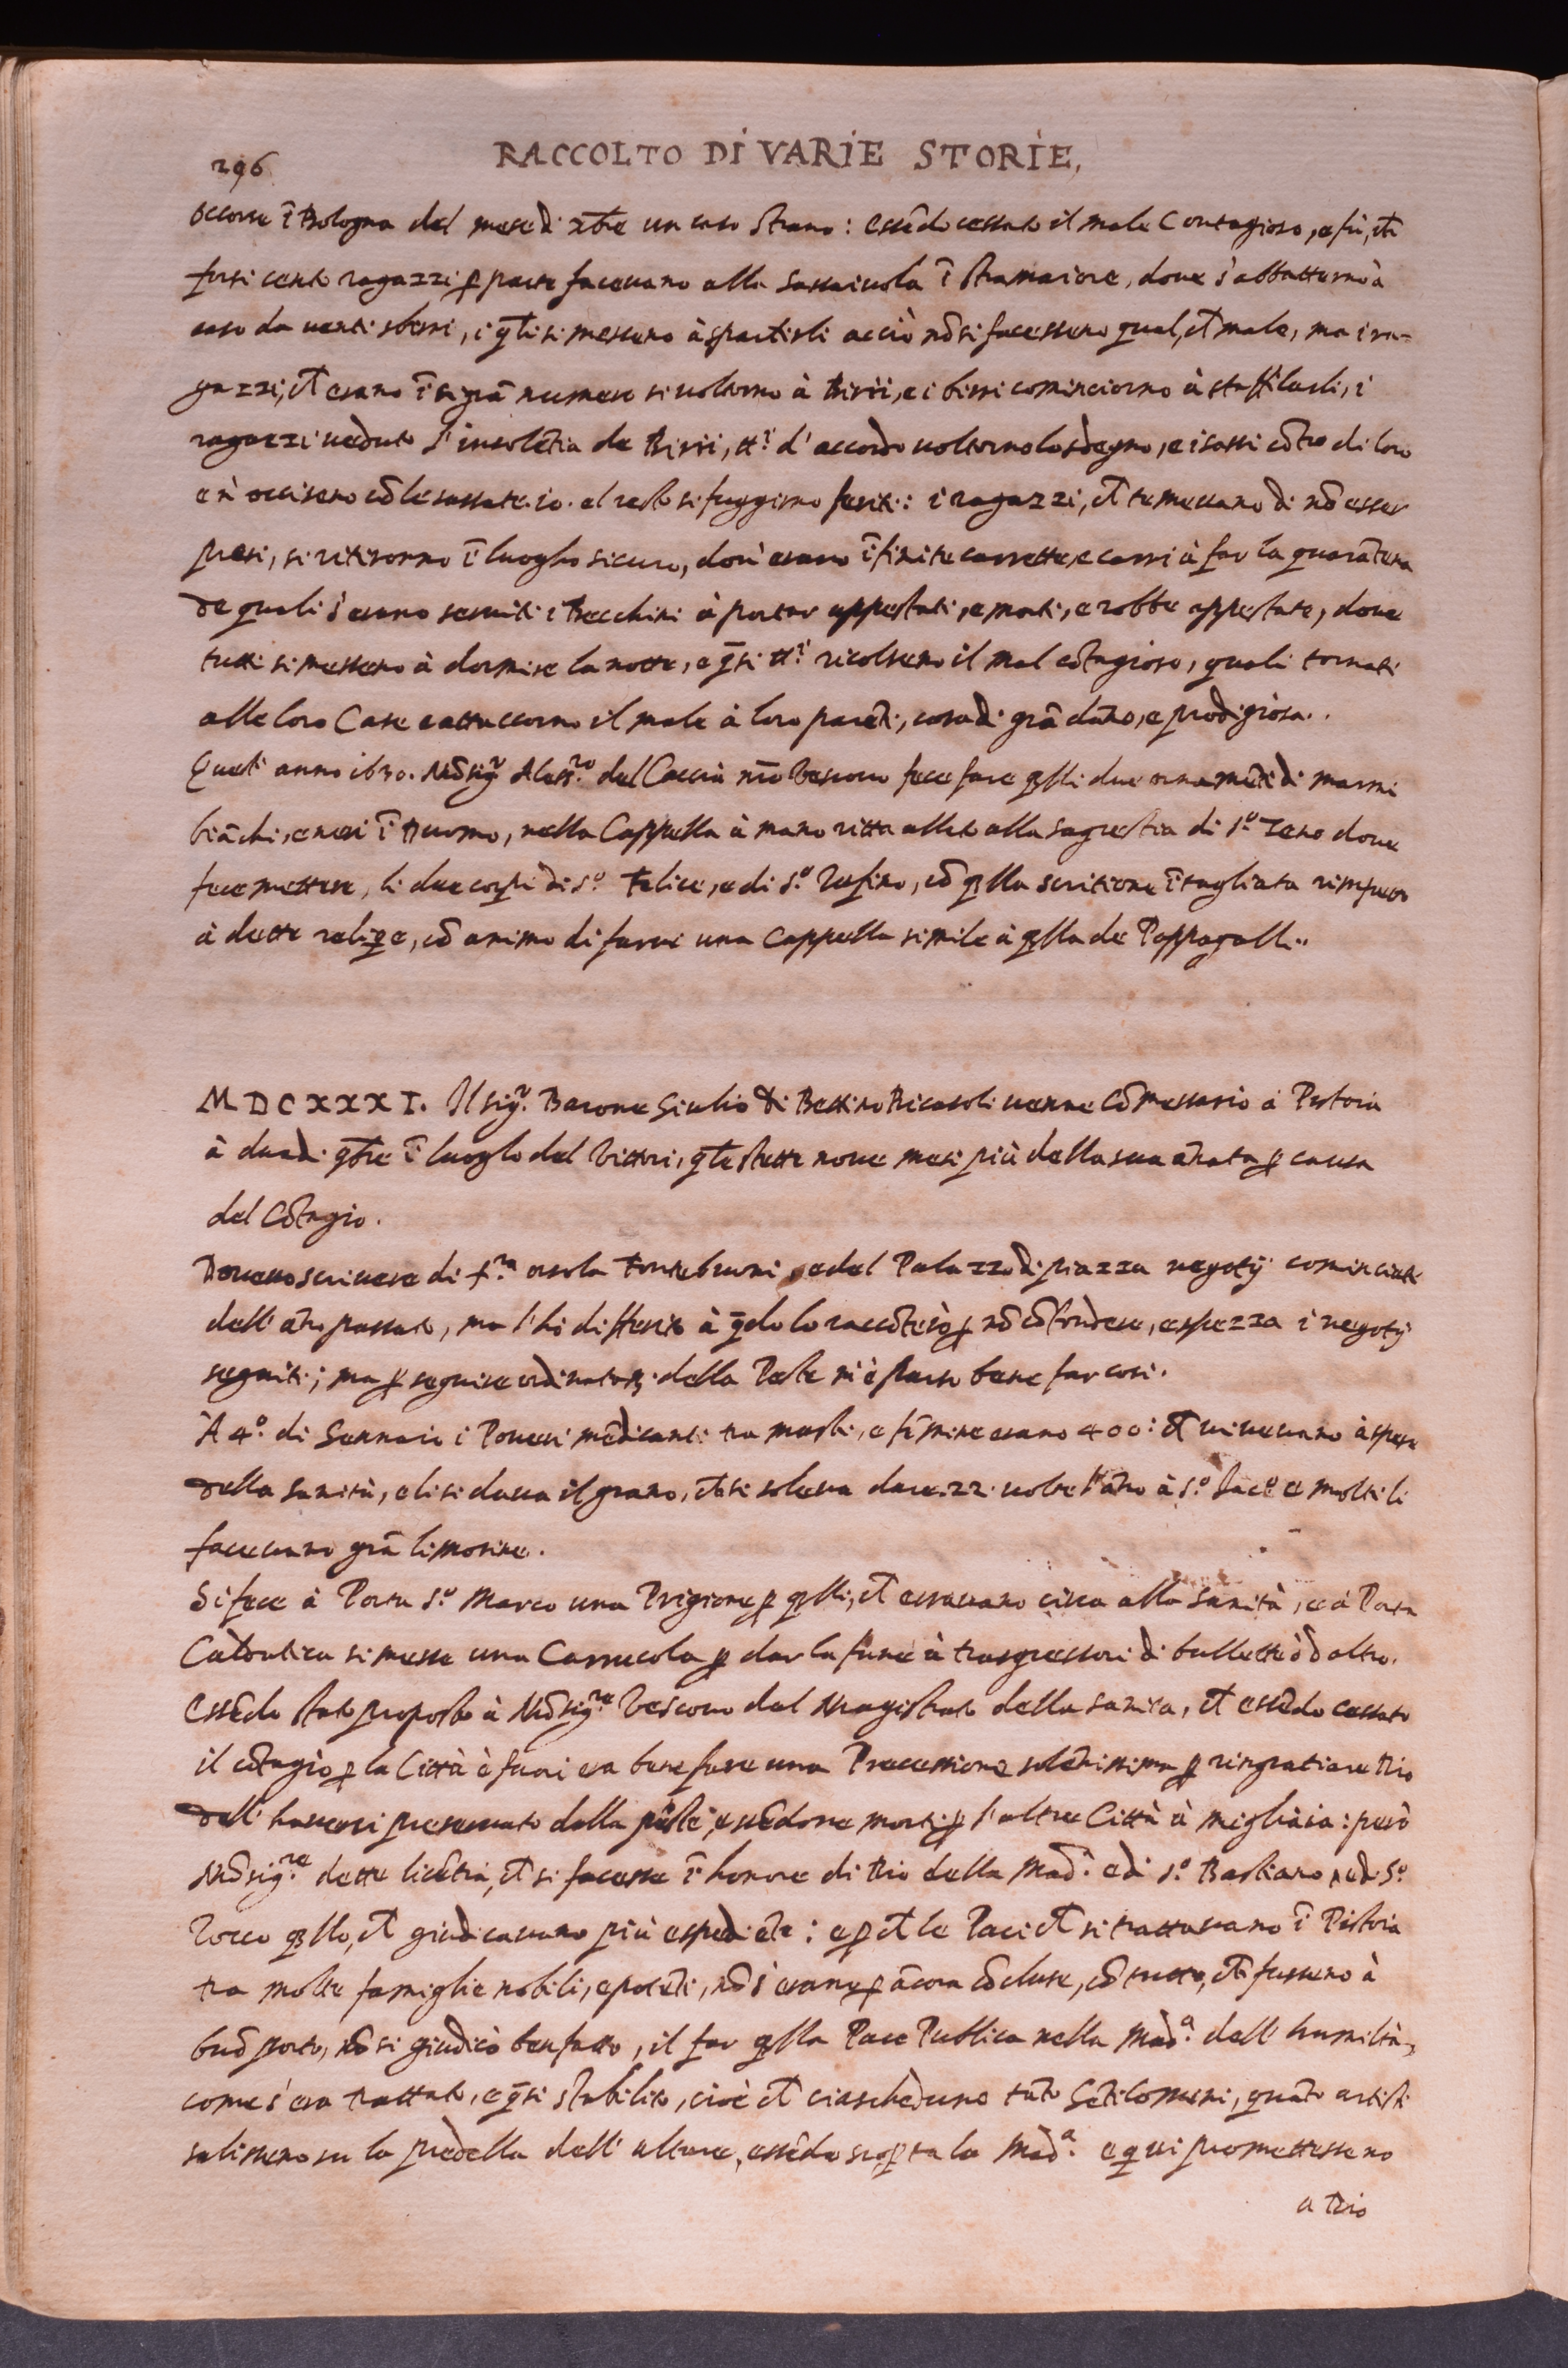 296
RACCOLTO DI VARIE STORIE,
Occorse ĩ Bologna del mese di xbre un caso strano: essẽdo cessato il male Contagioso, e fù, ch̃
forsi cento ragazzi ꝑ parte facevano alla sassaiuola ĩ stramaiore, dove s'abbatterno à
caso da venti sberri, i q̃li si messeno à spartirli acciò nõ si facesseno qual, ch̃ male, ma i ra-
gazzi, ch̃ erano ĩ si grã numero si voltorno à birri, e i birri cominciorno à staffilarli, i
ragazzi veduto l'insolẽtia de Birri, tti d'accordo voltorno lo sdegno, e i sassi cõtro di loro
e n'occiseno cõ le sassate .10. el resto si fuggirno feriti: i ragazzi, ch̃ temevano di nõ esser
presi, si ritirorno ĩ luogho sicuro, dov'erano ĩfinite carrette, e carri à far la quarãtena
de quali s'erano serviti i Becchini à portar appestati, e morti, e robbe appestate, dove
tutti si messeno à dormire la notte, e q̃si tti ricolseno il mal cõtagioso, quali tornati
alle loro Case e attaccorno il male à loro parẽti, cosa di grã dãno, e prodigiosa.
Quest'anno 1630. Mõsigr Alessro del Caccia nro Vescovo fece fare q̃lli due ornamẽti di marmi
biãchi, e neri ĩ Duomo, nella Cappella à mano ritta allato alla sagrestia di So Zeno dove
fece mettere, li due corpi di So Felice, e di So Rufino, cõ q̃lla scritione ĩtagliata rimpetto
à dette reliq̃e, cõ animo di farvi una Cappella simile à q̃lla de Pappagalli.
MDCXXXI. Il sigr. Barone Giulio di Bettino Ricasoli venne Cõmessario à Pistoia
à due di 9bre ĩ luogho del Vittori, q̃le stette nove mesi più della sua ãnata ꝑ causa
del Cõtagio.
Dovevo scrivere di Sra Orsola Fontebuoni, e del Palazzo di piazza negotij cominciati
dell'ãno passato, ma l'hò differito à q̃do lo raccõterò ꝑ nõ cõfondere, e spezza i negotij
seguiti; ma ꝑ seguire ordinatamẽ. della Peste m'è parso bene far così.
À 4o di Gennaio i Poveri mẽdicanti tra mashi, e fẽmine erano 400: ch̃ vivevano à spese
della sanità, e li si dava il grano, ch̃ si soleva dare .22. volte l'ãno à So Iaco e molti li
facevano grã limosine.
Si fece à Porta So Marco una Prigione ꝑ q̃lli, ch̃ erravano circa alla sanità, e à Porta
Caldatica si messe una Carrucola ꝑ dar la fune à trasgressori di bullette ò d'altro.
Essẽdo stato proposto à Mõsigre Vescovo dal Magistrato della sanità, ch̃ essẽdo cessato
il cõtagio ꝑ la Città è fuori era bene fare una Processione solẽnissima ꝑ ringratiare Dio
dell'haverci preservato dalla peste, essẽdone morti ꝑ l'altre Città à migliaia: però
Mõsigre dette licẽtia, ch̃ si facesse ĩ honore di Dio della Mada e di So Bastiano, e di So
Rocco q̃llo, ch̃ giudicavano più espediẽte: e ꝑ ch̃ le Paci ch̃ si trattavano ĩ Pistoia
tra molte famiglie nobili, e potẽti, nõ s'erano ꝑ ãcora cõcluse, cõ tutto, ch̃ fusseno à
buõ porto, nõ si giudicò ben fatto, il far q̃lla Pace Publica nella Mada dell'humiltà,
come s'era trattato, e q̃si stabilito, cioè ch̃ ciascheduno tãto Gẽtilomini, quãto artisti
salisseno su la predella dell'altare, essẽdo scoꝑta la Mada e qui promettesseno
a Dio